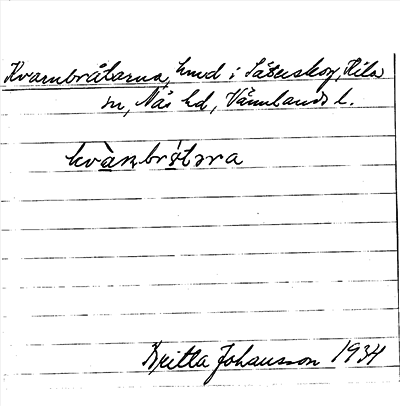 Kvarnbråtarna, hmd i Säterskog, Hila
sn, Näs hd, Värmlands l.
kvànbrøtəra
Britta Johansson 1934